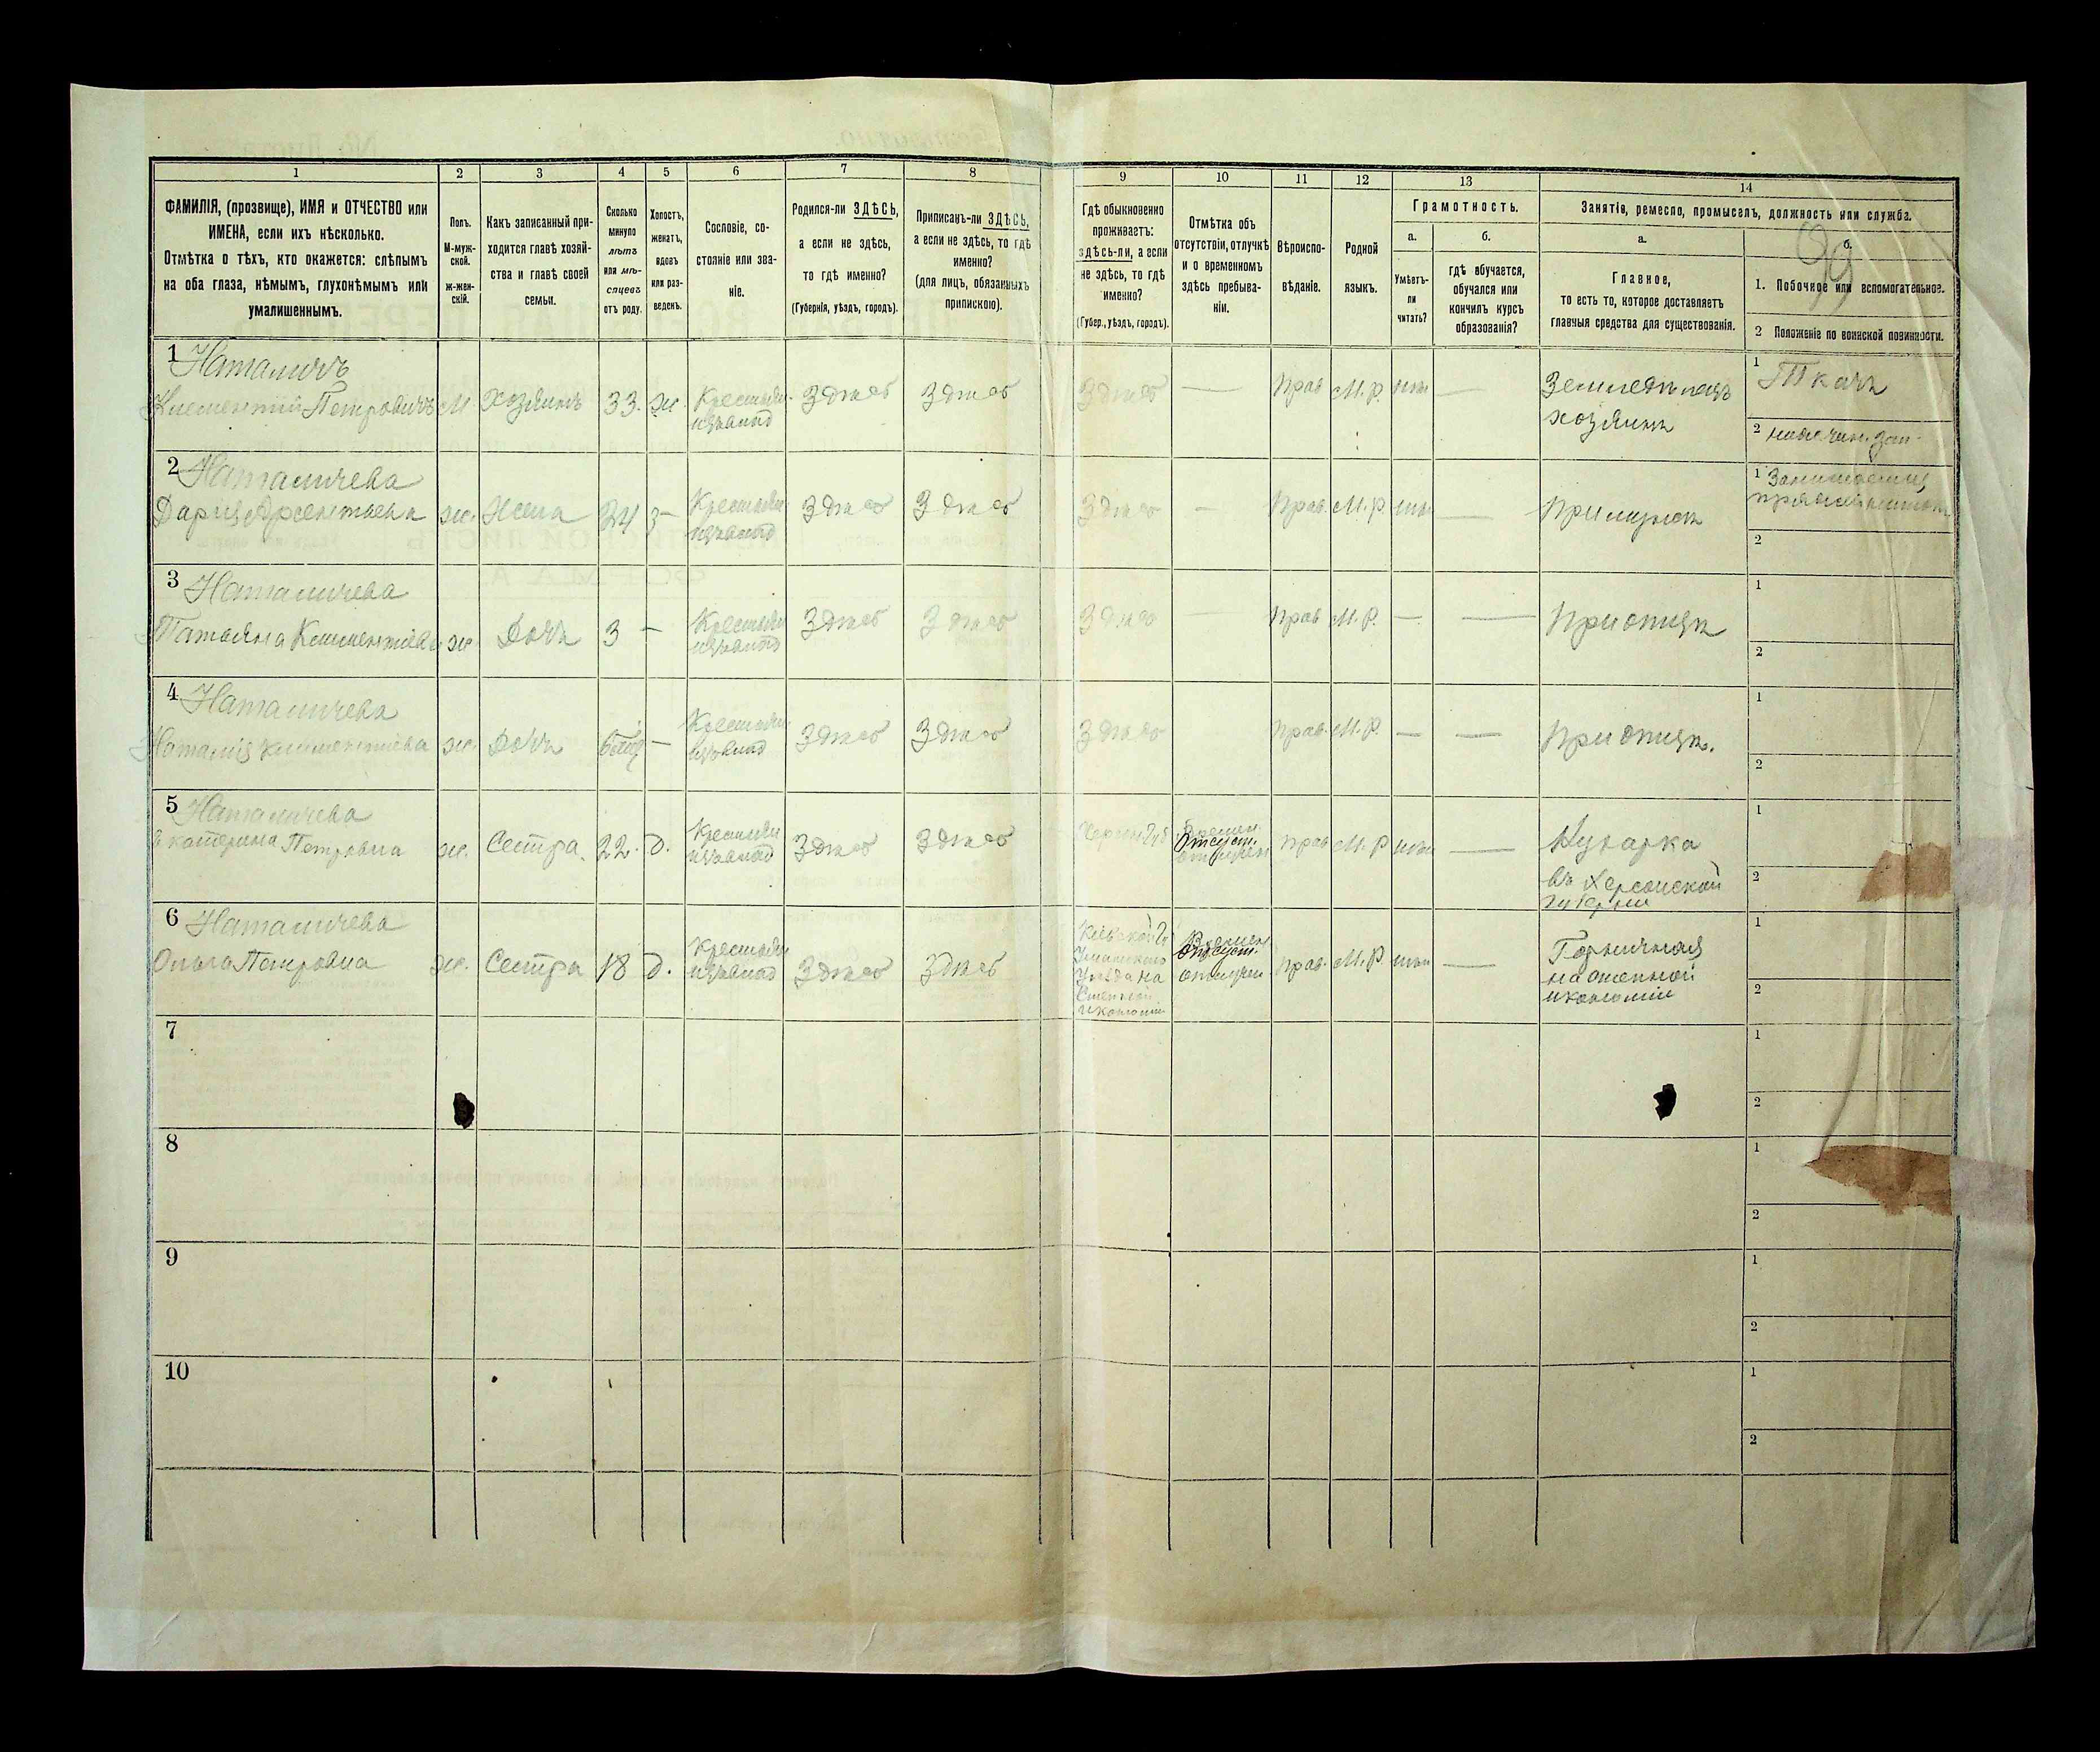 1 2 3 4 5 6 7 8 9 10 11 12 13 14
ФАМИЛІЯ, (прозвище), ИМЯ и ОТЧЕСТВО или
ИМЕНА, если ихъ нѣсколько.
Отмѣтка о тѣхъ, кто окажется: слѣпымъ
на оба глаза, нѣмымъ, глухонѣмымъ или
умалишеннымъ.
Полъ.
М-муж-
ской.
ж-жен-
скій.
Какъ записанный при-
ходится главѣ хозяй-
ства и главѣ своей
семьи.
Сколько
минуло
лѣтъ
или мѣ-
сяцевъ
отъ роду.
Холостъ,
женатъ,
вдовъ
или раз-
веденъ.
Сословіе, со-
стояніе или зва-
ніе.
Родился-ли ЗДѢСЬ,
а если не здѣсь,
то гдѣ именно?
(Губернія, уѣздъ, городъ).
Приписанъ-ли ЗДѢСЬ,
а если не здѣсь, то гдѣ
именно?
(для лицъ, обязанныхъ
припискою).
Гдѣ обыкновенно
проживаетъ:
здѣсь-ли, а если
не здѣсь, то гдѣ
именно?
(Губер., уѣздъ, городъ).
Отмѣтка объ
отсутствіи, отлучкѣ
и о временномъ
здѣсь пребыва-
ніи.
Вѣроиспо-
вѣданіе.
Родной
языкъ.
Грамотность.
а.
Умѣетъ-
ли
читать?
б.
гдѣ обучается,
обучался или
кончилъ курсъ
образованія?
Занятіе, ремесло, промыселъ, должность или служба.
а.
Главное,
то есть то, которое доставляетъ
главныя средства для существованія.
б.
99
1. Побочное или вспомогательное.
2 Положеніе по воинской повинности.
1 Наталичъ
Климентій Петровичъ М. Хозяинъ 33. ж. Крестьян. Здѣсь Здѣсь Здѣсь — Прав. М. Р. —
Земледѣлецъ
хозяинъ
1 Ткачъ
2
2 Наталичева
Дарія Арсентьевна ж. Жена 24 з— Крестьян. Здѣсь Здѣсь Здѣсь — Прав. М. Р. — При мужѣ
1 Занимается
2
3 Наталичева
Татьяна Климентіева ж. Дочь 3 — Крестьян. Здѣсь Здѣсь Здѣсь — Прав М. Р. — — При отцѣ
1
2
4 Наталичева
Наталія Климентіева ж. Дочь — Крестьян. Здѣсь Здѣсь Здѣсь Прав. М. Р. — — При отцѣ.
1
2
5 Наталичева
Екатерина Петровна ж. Сестра. 22. д. Крестьян. Здѣсь Здѣсь Херсон. Губ. Отсутст. Прав М. Р —
Кухарка
въ Херсонской
губерніи
1
2
6 Наталичева
Ольга Петровна ж. Сестра 18 д. Крестьян. Здѣсь Здѣсь
Кіевской Гу
Уманского
Уѣзда на
Степной
икономіи
Времен.
Отсутст.
Прав. М. Р. —
Горничная
на степной
икономіи
1
2
7
1
2
8
1
2
9
1
2
10
1
2